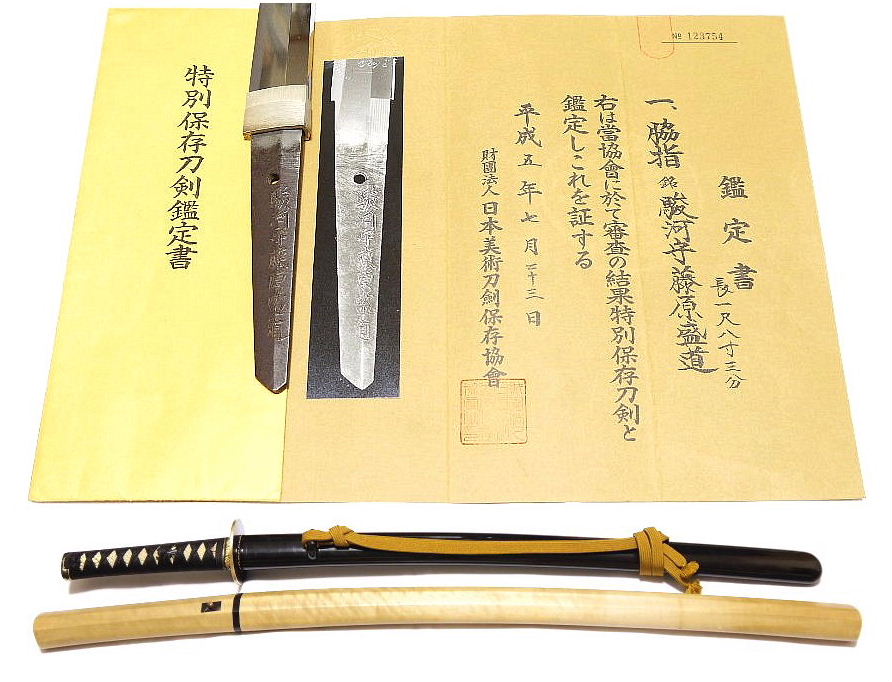 № 123754
鑑定書
一、脇指 銘 駿河守藤原盛道
長一尺八寸三分
右は當協會に於て審査の結果特別保存刀剣と
鑑定しこれを証する
平成五年七月二十三日
財團法人 日本美術刀劍保存協會
駿河守藤原盛道
駿河守藤原盛道
特別保存刀剣鑑定書